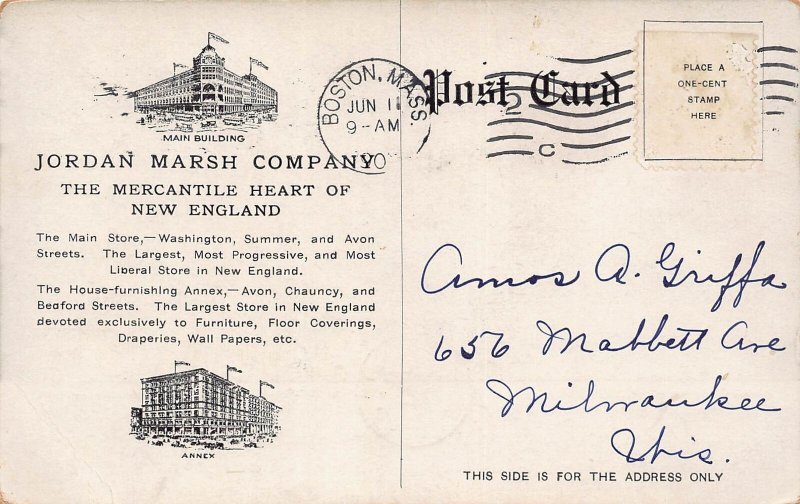 MAIN BUILDING
JORDAN MARSH COMPANY
THE MERCANTILE HEART OF
NEW ENGLAND
The Main Store,—Washington, Summer, and Avon
Streets. The Largest, Most Progressive, and Most
Liberal Store in New England.
The House-furnishing Annex,—Avon, Chauncy, and
Bedford Streets. The Largest Store in New England
devoted exclusively to Furniture, Floor Coverings,
Draperies, Wall Papers, etc.
ANNEX
BOSTON, MASS.
JUN 11
9-AM
Post Card
2
C
PLACE A
ONE-CENT
STAMP
HERE
Amos A. Griffa
656 Mabbett Ave
Milwaukee
Wis.
THIS SIDE IS FOR THE ADDRESS ONLY